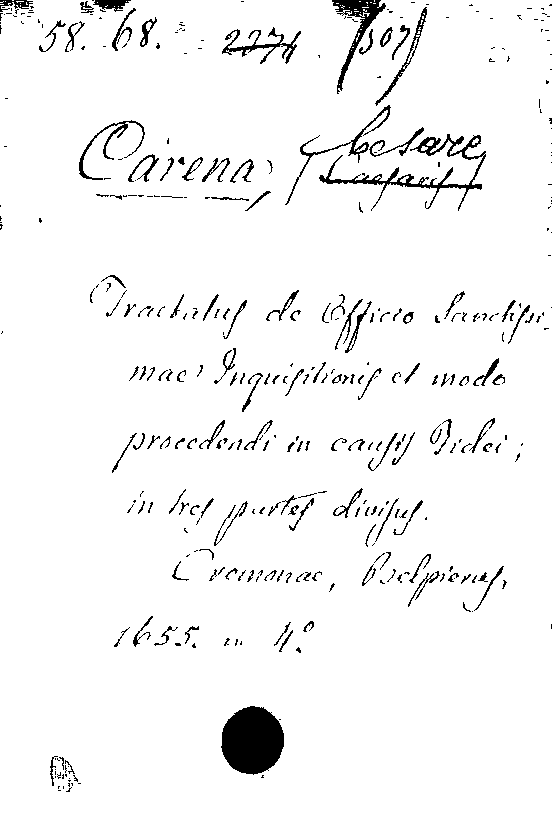 58. 68. 2274 (307)
Carena, (Cesare
Caesaris)
Tractatus de Officio Sanctissi-
mae Inquisitionis et modo
procedendi in causis Fidei;
in tres partes divisus.
Cremonae, Belpierus,
1655. in 4.º